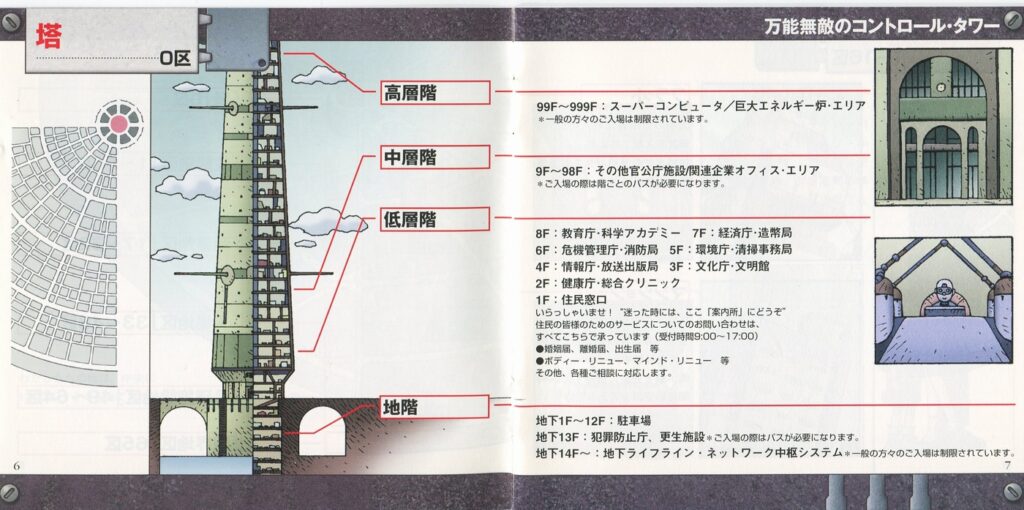 塔
0区
万能無敵のコントロール・タワー
高層階
99F〜999F：スーパーコンピュータ／巨大エネルギー炉・エリア
＊一般の方々のご入場は制限されています。
中層階
9F〜98F：その他官公庁施設/関連企業オフィス・エリア
＊ご入場の際は階ごとのパスが必要になります。
低層階
8F：教育庁・科学アカデミー　7F：経済庁・造幣局
6F：危機管理庁・消防局　5F：環境庁・清掃事務局
4F：情報庁・放送出版局　3F：文化庁・文明館
2F：健康庁・総合クリニック
1F：住民窓口
いらっしゃいませ！ “迷った時には、ここ『案内所』にどうぞ”
住民の皆様のためのサービスについてのお問い合わせは、
すべてこちらで承っています（受付時間9:00〜17:00）
●婚姻届、離婚届、出生届　等
●ボディー・リニュー、マインド・リニュー　等
その他、各種ご相談に対応します。
地階
地下1F〜12F：駐車場
地下13F：犯罪防止庁、更生施設＊ご入場の際はパスが必要になります。
地下14F〜：地下ライフライン・ネットワーク中枢システム＊一般の方々のご入場は制限されています。
6
7